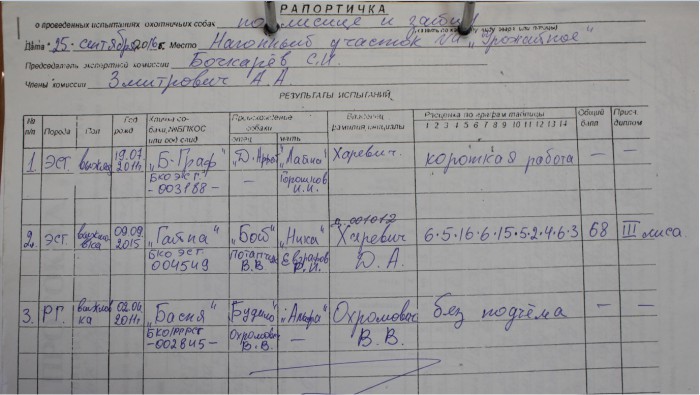 РАПОРТИЧКА
о проведенных испытаниях охотничьих собак по лисице и зайцу
Дата "25" сентября 2016 г. Место Нагонный участок "Урожайное"
Председатель экспертной комиссии Бочкарёв С.И.
Члены комиссии Змитрович А.А.
РЕЗУЛЬТАТЫ ИСПЫТАНИЙ
№ п/п Порода Пол Год рожд Кличка собаки, №БПКОС или род.свид Происхождение собаки отец мать Владелец фамилия, инициалы Расценка по графам таблицы 1 2 3 4 5 6 7 8 9 10 11 12 13 14 Общий балл Присв. диплом
1 ЭСГ. выжлец 19.07. 2011г. „Б-Граф" „Лайна" Харевич. короткая работа — —
БКО ЭСГ. -003188- — Горошков И.И.
2. ЭСГ. выжловка 09.09. 2015 „Гайна" „Бой" „Ника" 001012 Харевич 6·5·16·6·15·5·2·4·6·3 68 III лиса
БКО ЭСГ 004549 Потапчик В.В Д.А.
3. Р.Г. выжловка 02.04 2011г. „Басня" „Будило" Охромович без подъёма — —
-002845- Охромович В.В. — В.В.